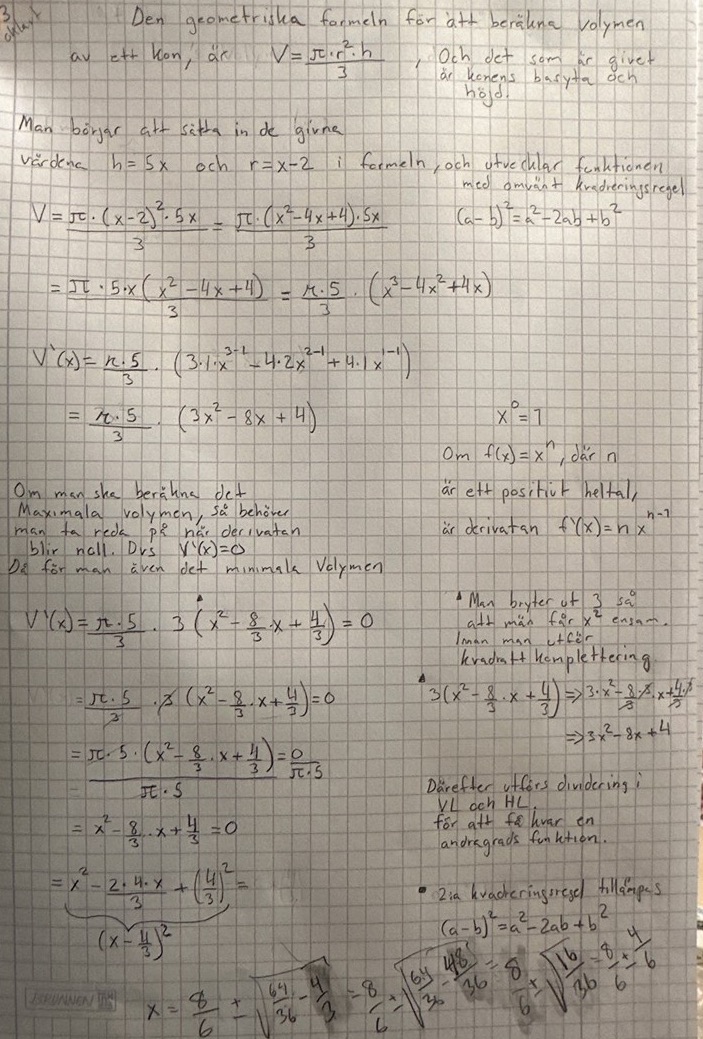 3
oklart
Den geometriska formeln för att beräkna volymen
av ett kon, är V = π·r²·h / 3 , Och det som är givet
är konens basyta och
höjd.
Man börjar att sätta in de givna
värdena h=5x och r=x-2 i formeln, och utvecklar funktionen
med omvänt kvadreringsregel
V = π·(x-2)²·5x / 3 = π·(x²-4x+4)·5x / 3
(a-b)²=a²-2ab+b²
= π·5·x(x²-4x+4) / 3 = π·5 / 3 · (x³-4x²+4x)
V'(x) = π·5 / 3 · (3·1·x³⁻¹-4·2x²⁻¹+4·1x¹⁻¹)
= π·5 / 3 · (3x²-8x+4)
x⁰=1
Om f(x)=xⁿ, där n
är ett positivt heltal,
är derivatan f'(x)=nxⁿ⁻¹
Om man ska beräkna det
Maximala volymen, så behöver
man ta reda på när derivatan
blir noll. Dvs V'(x)=0
Då får man även det minimala Volymen
V'(x) = π·5 / 3 · 3(x²-8/3·x+4/3)=0
Man bryter ut 3 så
att man får x² ensam.
Innan man utför
kvadratt komplettering
= π·5 / 3 · 3 (x²-8/3·x+4/3)=0
3(x²-8/3·x+4/3)⇒3·x²-8·3/3·x+4·3/3
⇒3x²-8x+4
= π·5·(x²-8/3·x+4/3) / π·5 = 0 / π·5
Därefter utförs dividering i
VL och HL,
för att få kvar en
andragrads funktion.
= x²-8/3·x+4/3=0
= x²-2·4·x/3+(4/3)²=
(x-4/3)²
• 2:a kvadreringsregel tillämpas
(a-b)²=a²-2ab+b²
x = 8/6 ± √(64/36-4/3) = 8/6 ± √(64/36-48/36) = 8/6 ± √(16/36) = 8/6 ± 4/6